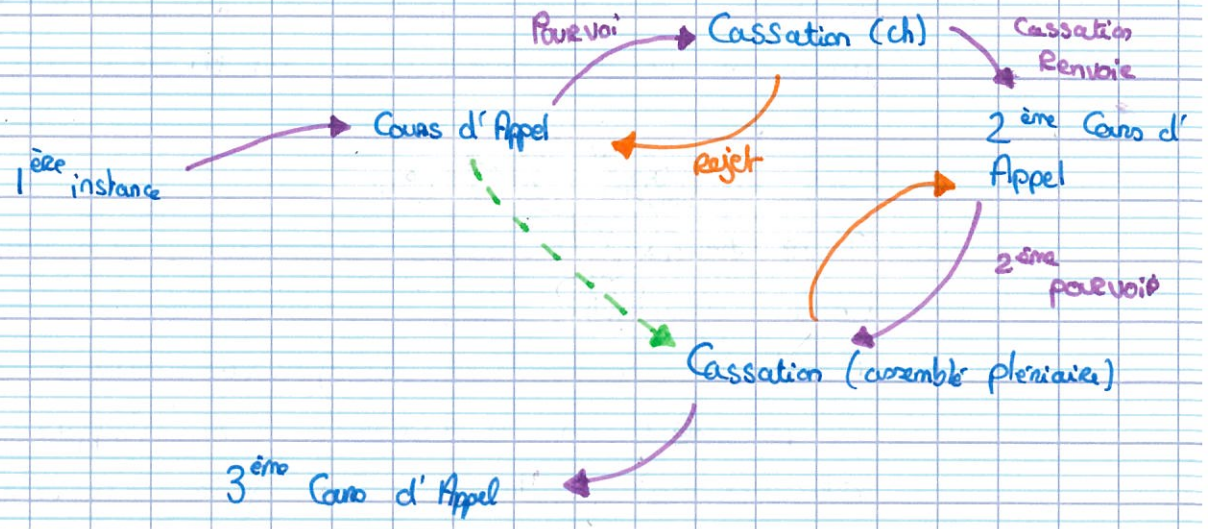 Pourvoi
Cassation (ch)
Cassation
Renvoie
Cours d'Appel
2ème Cours d'
Appel
rejet
1ère instance
2ème
pourvoi
Cassation (assemblé pléniaire)
3ème Cours d'Appel